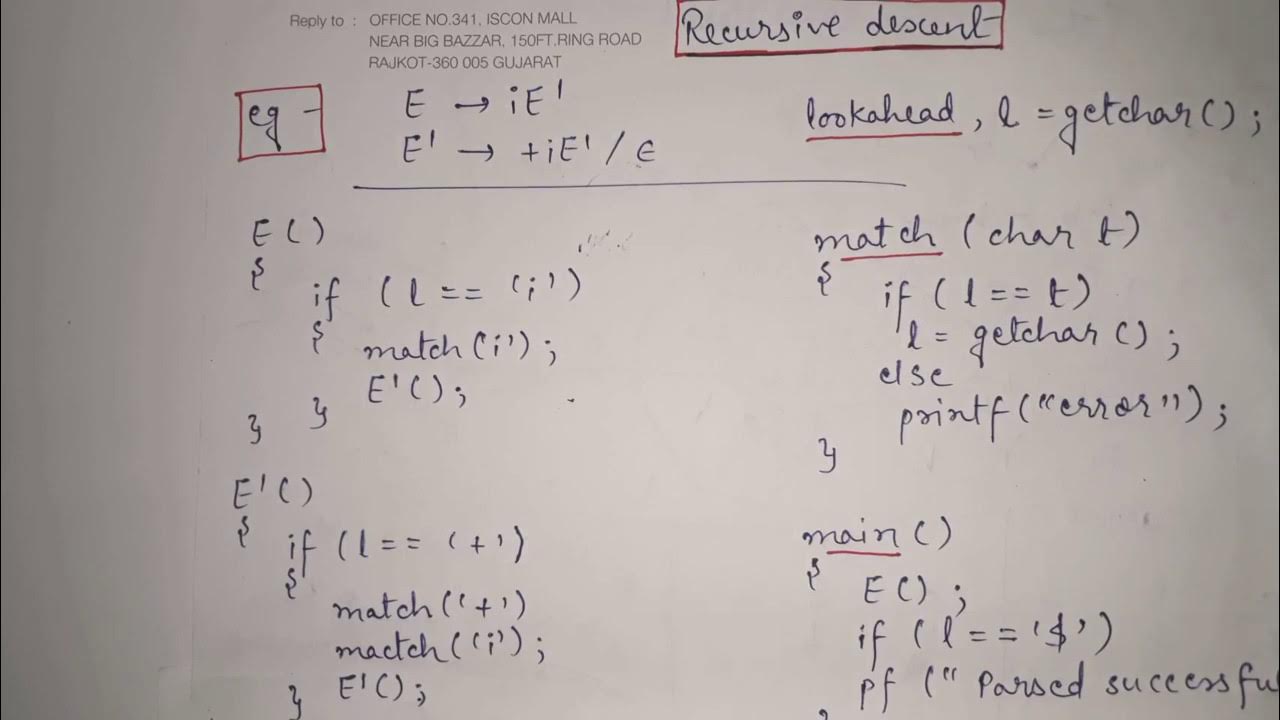 Reply to : OFFICE NO.341, ISCON MALL
NEAR BIG BAZZAR, 150FT.RING ROAD
RAJKOT-360 005 GUJARAT
Recursive descent
eg -
E → iE'
E' → +iE' / ε
lookahead, l = getchar();
E()
{
if (l == 'i')
{
match(i');
E'();
}
}
E'()
{
if (l == '+')
{
match('+')
mactch('i');
E'();
}
match (char t)
{
if (l == t)
l = getchar();
else
printf("error");
}
main()
{
E();
if (l == '$')
pf (" Parsed successfu